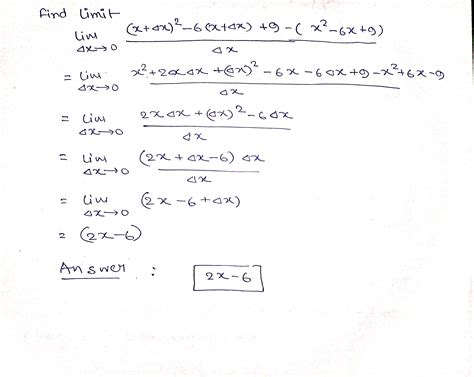 find limit
lim Δx→0 (x+Δx)²-6(x+Δx)+9-(x²-6x+9) / Δx
= lim Δx→0 x²+2xΔx+(Δx)²-6x-6Δx+9-x²+6x-9 / Δx
= lim Δx→0 2xΔx+(Δx)²-6Δx / Δx
= lim Δx→0 (2x+Δx-6)Δx / Δx
= lim Δx→0 (2x-6+Δx)
= (2x-6)
Answer : 2x-6